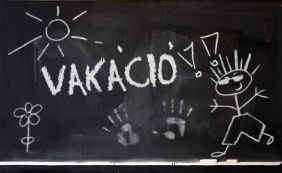 VAKÁCIÓ!!